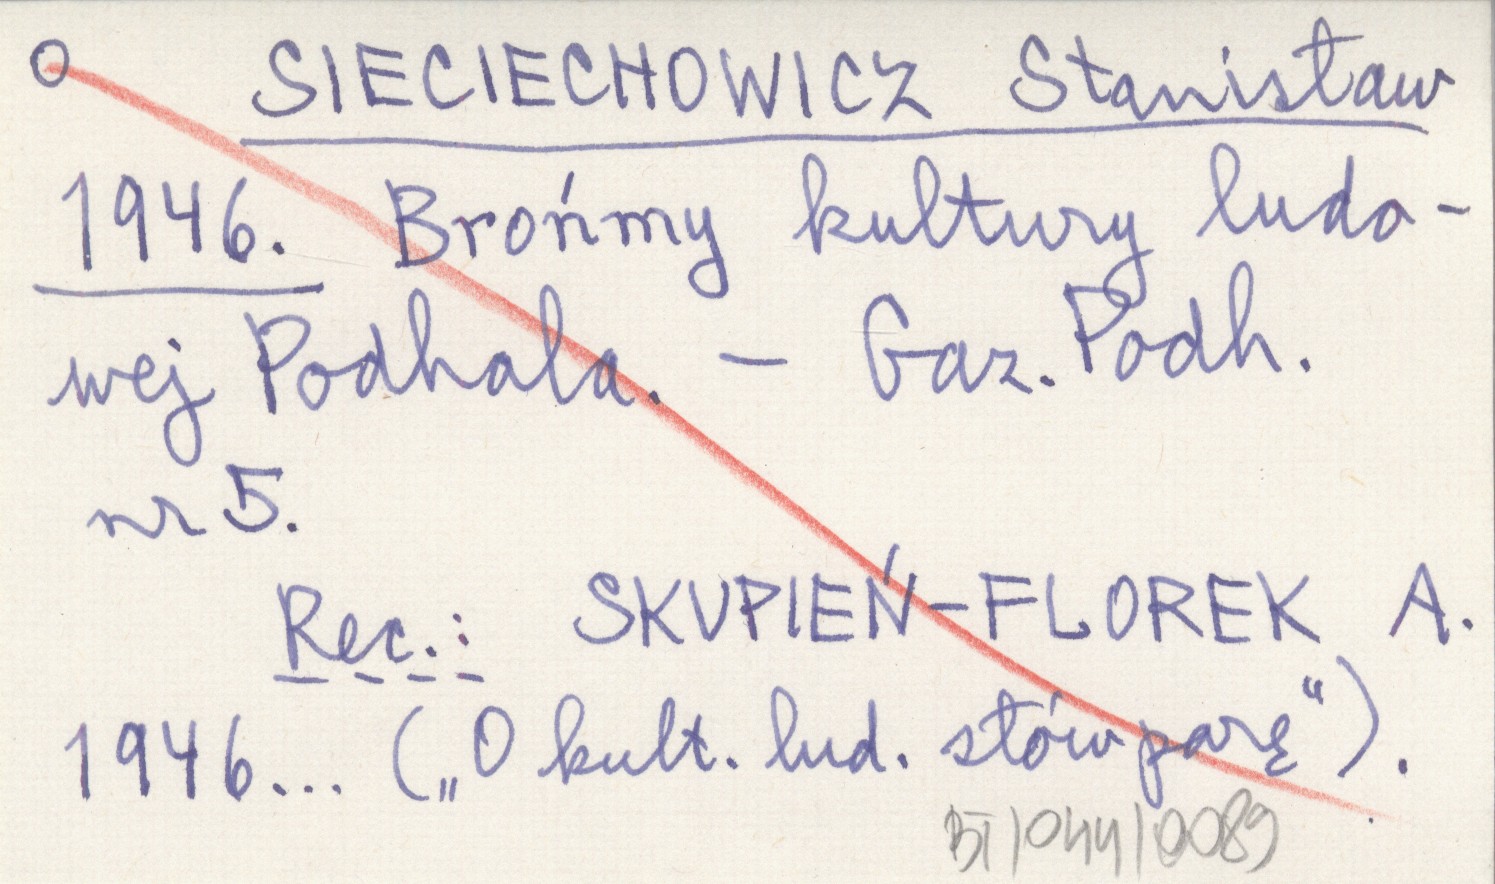 O SIECIECHOWICZ Stanisław
1946. Brońmy kultury ludo-
wej Podhala. – Gaz. Podh.
nr 5.
Rec.: SKUPIEŃ-FLOREK A.
1946... („O kult. lud. słów parę“).
BI/044/0089